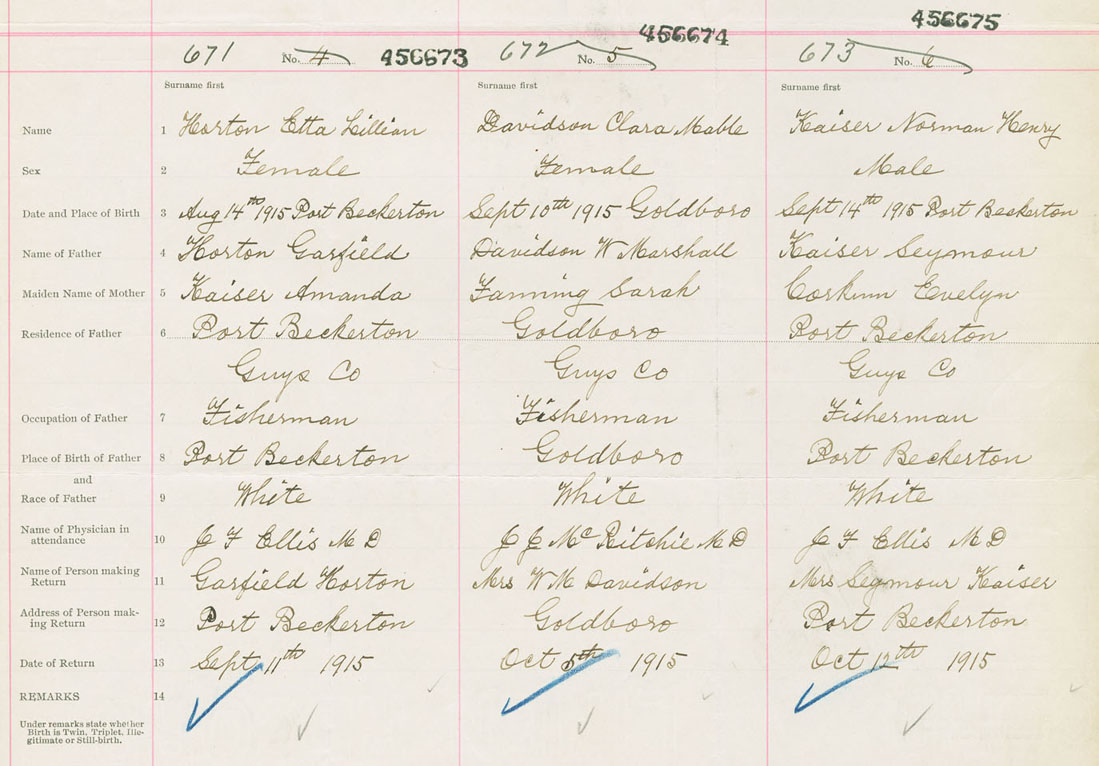 456675
456674
671 No. 4 456673 672 No. 5 673 No. 6
Surname first Surname first Surname first
Name 1 Horton Etta Lillian Davidson Clara Mable Kaiser Norman Henry
Sex 2 Female Female Male
Date and Place of Birth 3 Aug 14th 1915 Port Beckerton Sept 10th 1915 Goldboro Sept 14th 1915 Port Beckerton
Name of Father 4 Horton Garfield Davidson W Marshall Kaiser Seymour
Maiden Name of Mother 5 Kaiser Amanda Fanning Sarah Evelyn
Residence of Father 6 Port Beckerton Goldboro Port Beckerton
Guys Co Guys Co Guys Co
Occupation of Father 7 Fisherman Fisherman Fisherman
Place of Birth of Father 8 Port Beckerton Goldboro Port Beckerton
and
Race of Father 9 White White White
Name of Physician in
attendance 10 J F Ellis M D J J McRitchie M D J F Ellis M D
Name of Person making
Return 11 Garfield Horton Mrs W M Davidson Mrs Seymour Kaiser
Address of Person mak-
ing Return 12 Port Beckerton Goldboro Port Beckerton
Date of Return 13 Sept 11th 1915 Oct 5th 1915 Oct 12th 1915
REMARKS 14
Under remarks state whether
Birth is Twin, Triplet, Ille-
gitimate or Still-birth.